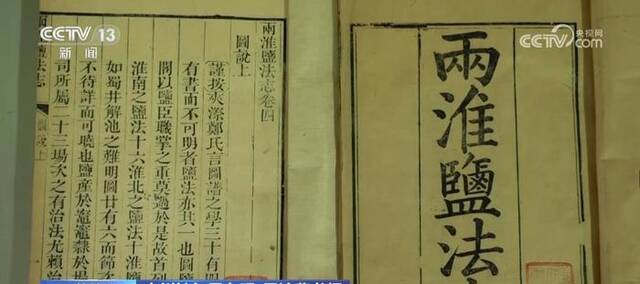 CCTV 13
新闻
CCTV.com
央视网
兩淮鹽法
兩淮鹽法志卷四
圖說上
謹按夾漈鄭氏言圖譜之學三十有
有書而不可明者鹽法亦其一也圖鹽
閒以鹽臣職掌之重莫過於是故首列
淮南之鹽法十六淮北之鹽法十淮鹽
如蜀井解池之難明圖廿有六而節
不待詳而可曉也鹽產於竈竈隸於
司所屬二十三場次之有治法尤賴治
鹽法志
圖說上